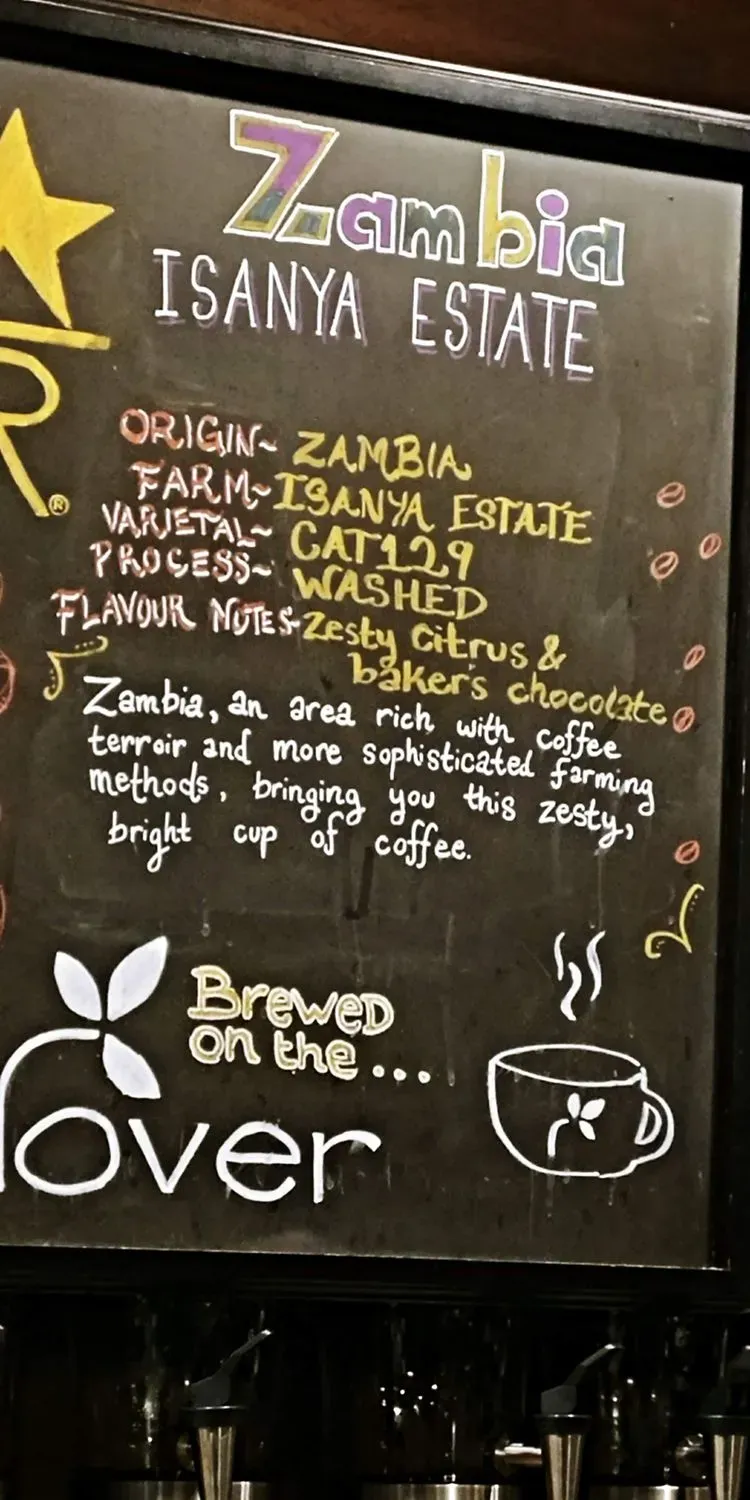 Zambia
ISANYA ESTATE
R®
ORIGIN~ ZAMBIA
FARM~ ISANYA ESTATE
VARIETAL~ CAT129
PROCESS~ WASHED
FLAVOUR NOTES~ Zesty Citrus &
baker's chocolate
Zambia, an area rich with coffee
terroir and more sophisticated farming
methods, bringing you this zesty,
bright cup of coffee.
Brewed
on the...
over